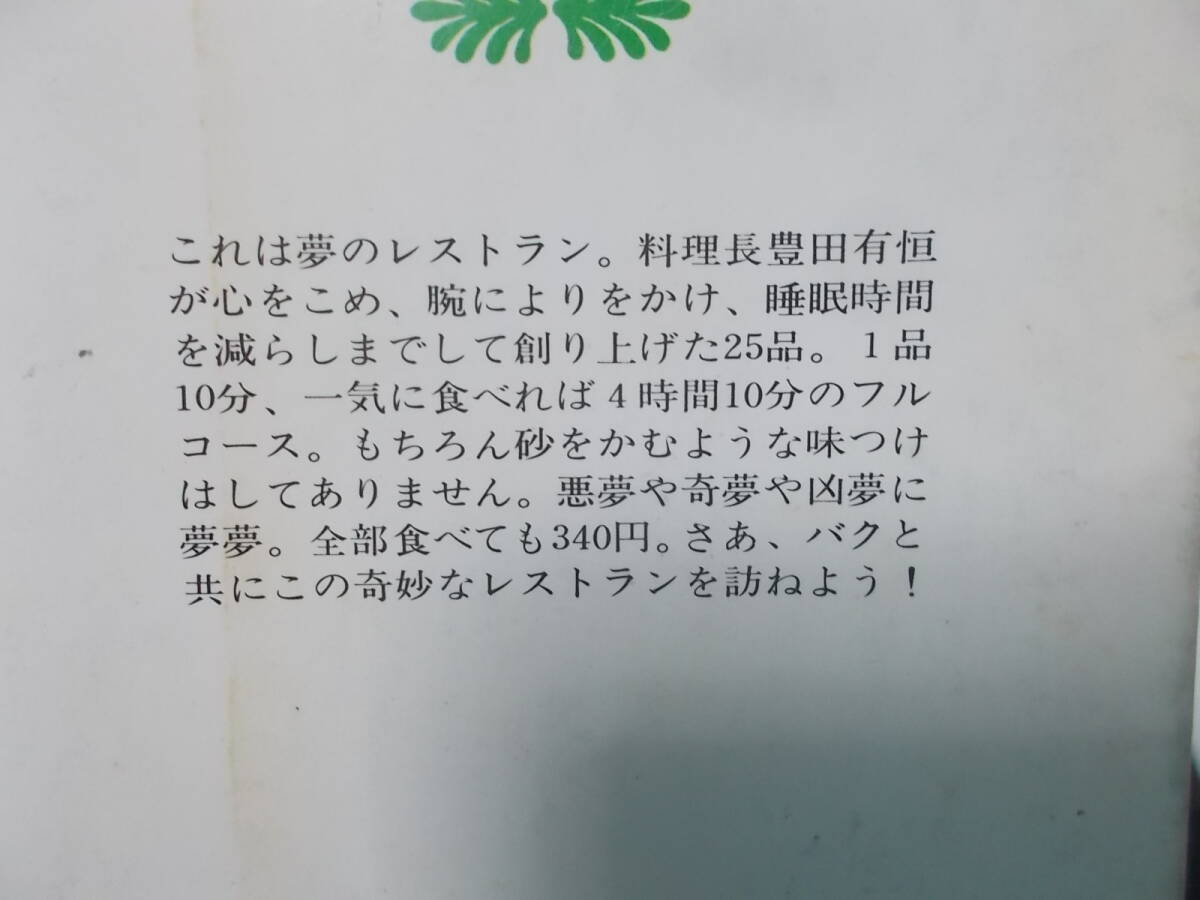 これは夢のレストラン。料理長豊田有恒
が心をこめ、腕によりをかけ、睡眠時間
を減らしまでして創り上げた25品。1品
10分、一気に食べれば4時間10分のフル
コース。もちろん砂をかむような味つけ
はしてありません。悪夢や奇夢や凶夢に
夢夢。全部食べても340円。さあ、バクと
共にこの奇妙なレストランを訪ねよう！